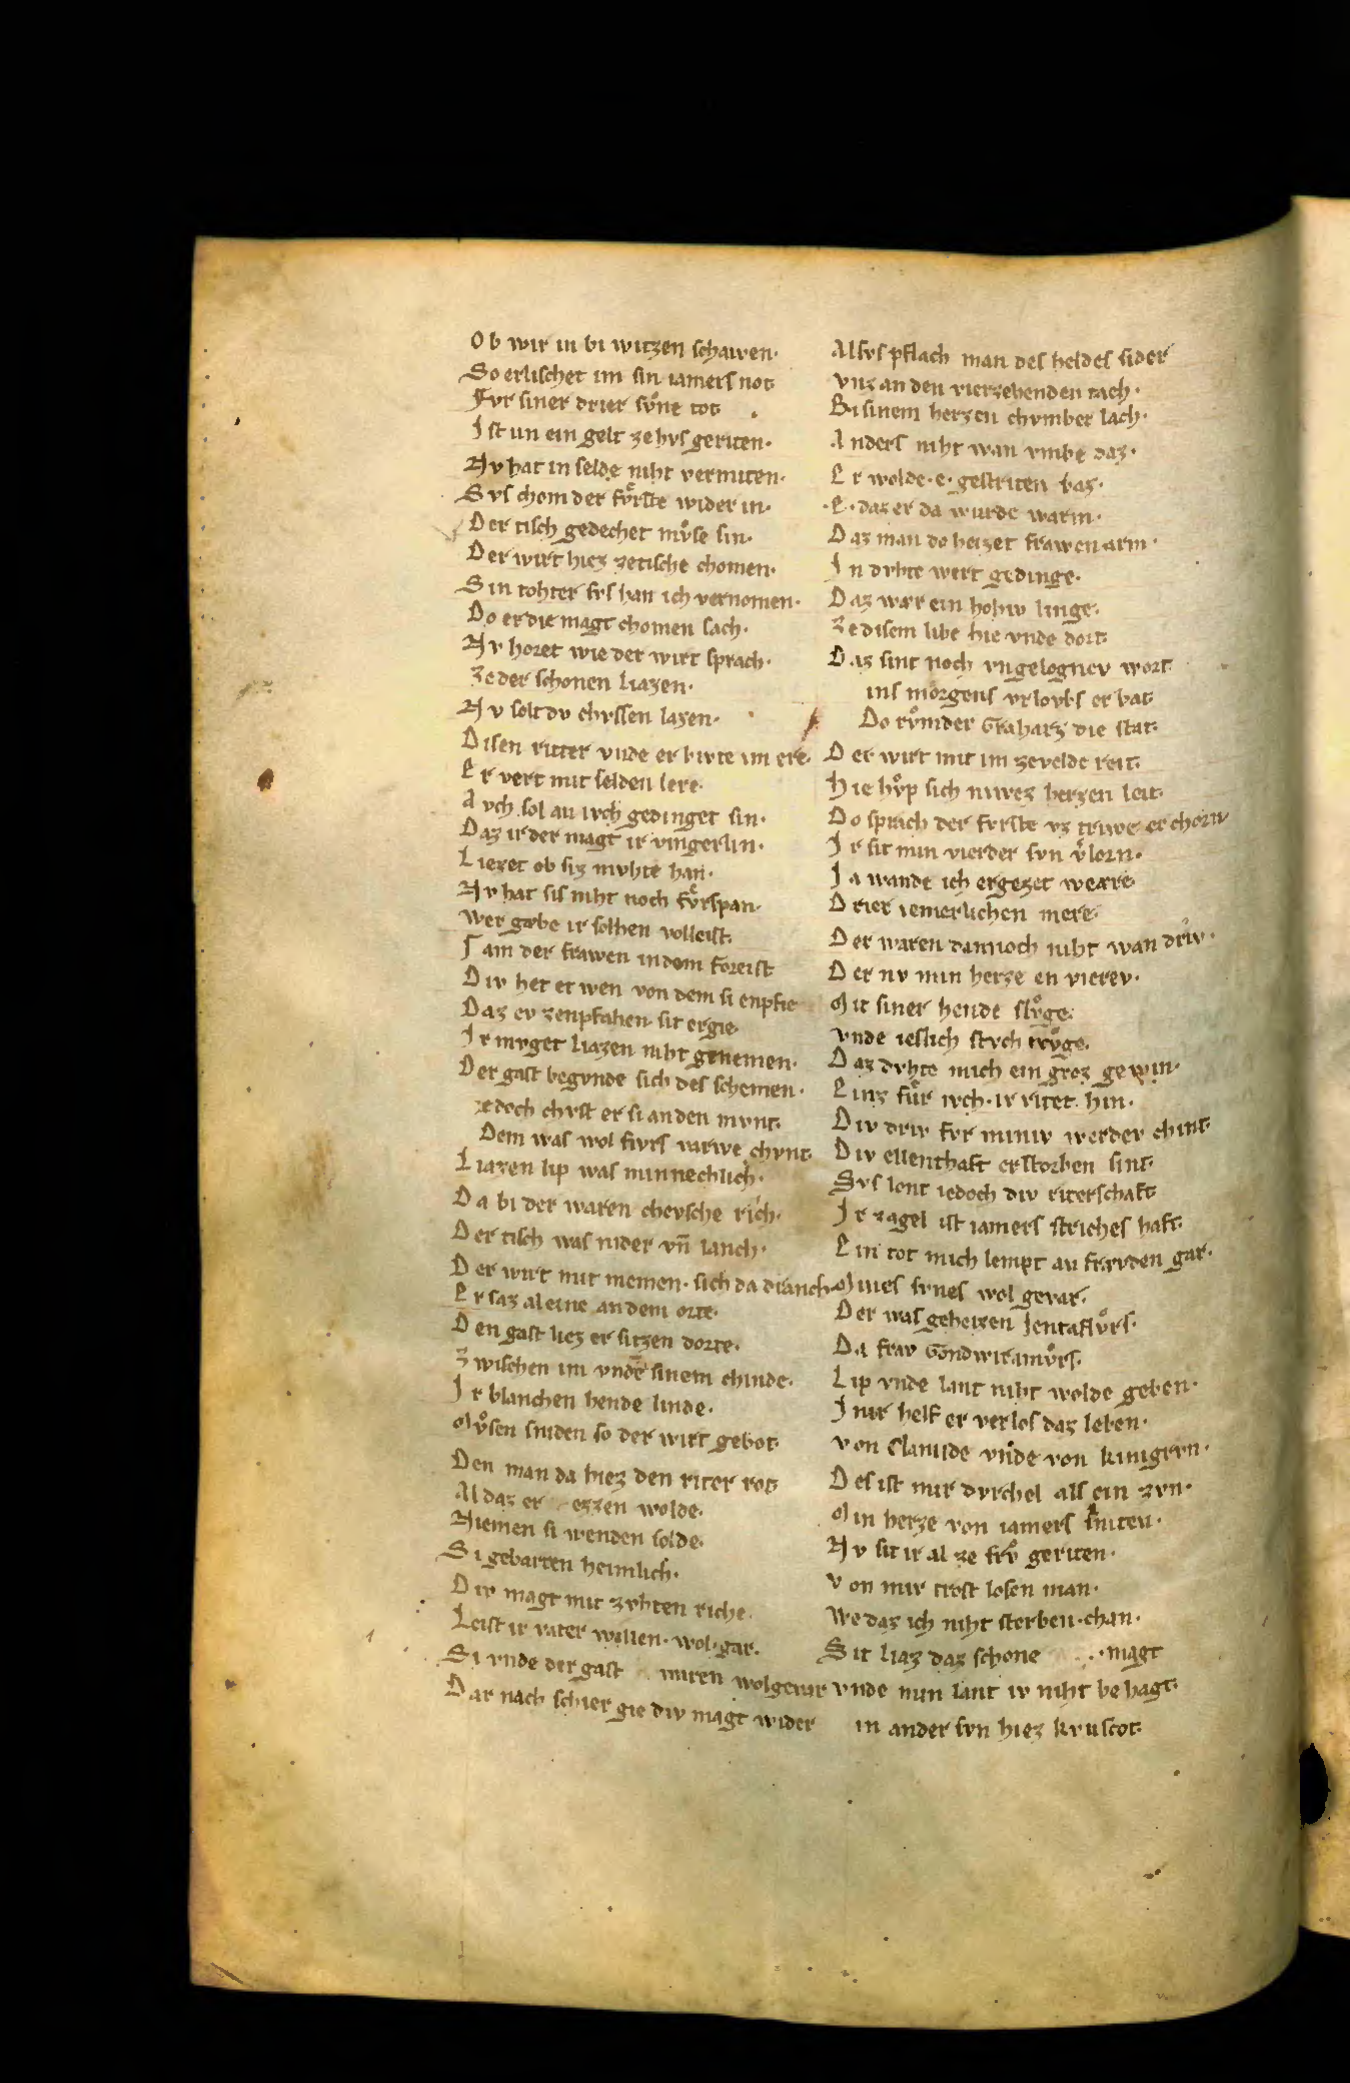 Ob wir in bi witzen schawen·
So erlischet im sin iamers not
Fvr siner drier svͦne tot
Ist un ein gelt ze hvs geriten·
Nv hat in selde niht vermiten·
Svs chom der fvͤrste wider in·
Der tisch gedechet mvͦse sin·
Der wirt hiez zetische chomen·
Sin tohter svs han ich vernomen·
Do er die magt chomen sach·
Nv horet wie der wirt sprach·
Ze der schonen liazen·
Nv solt dv chvssen lazen·
Disen ritter vnde er bivte im ere·
Er vert mit selden lere·
Avch sol an ivch gedinget sin·
Daz ir der magt ir vingerlin·
Liezet ob siz mvhte han·
Nv hat sis niht noch fvͤrspan·
Wer gæbe ir solhen volleist·
Sam der frawen in dem foreist
Div het et wen von dem si enpfie
Daz ev zenpfahen· sit ergie·
Ir mvget liazen niht genemen·
Der gast begvnde sich des schemen·
zedoch chvst er si an den mvnt·
Dem was wol fivrs varwe chvnt·
Liazen lip was minnechlich·
Da bi der waren chevsche rich·
Der tisch was nider vn̄ lanch·
Der wirt mit niemen· sich da dranch·
Er saz al eine an dem orte·
Den gast liez er sitzen dorte·
Zwischen im vnde sinem chinde·
Ir blanchen hende linde·
Mvͦsen sniden so der wirt gebot·
Den man da hiez den riter rot
Al daz er eszen wolde·
Niemen si wenden solde·
Si gebarten heimlich·
Div magt mit zvhten riche·
Leist ir vater willen· wol·gar·
Si vnde der gast wiren wolgevar
Dar nach schier gie div magt wider
Alsvs pflach man des heldes sider
Vnz an den vierzehenden tach·
Bi sinem herzen chvmber lach·
Anders niht wan vmbe daz·
Er wolde·e· gestriten baz·
·E· daz er da wurde warm·
Daz man do heizet frawen arm·
In dvhte wert gedinge·
Daz wær ein hohiv linge·
Ze disem libe hie vnde dort·
Daz sint noch vngelognev wort·
ins morgens vrlovbs er bat
Do rvͦmder Graharz die stat·
Der wirt mit im zevelde reit·
Hie hvͦp sich niwez herzen leit·
Do sprach der fvrste vz triwe erchorn
Ir sit min vierder svn v̓lorn·
Ja wande ich ergezet weære·
Drier iemerlichen mere·
Der waren dannoch niht wan driv·
Der nv min herze en vierev·
Mit siner hende slvͦge·
vnde ieslich stvch trvͦge·
Daz dvhte mich ein groz gewin·
Einz fuͤr ivch· ir ritet hin·
Div driv fvr miniv werder chint·
Div ellenthaft erstorben sint·
Svs lont iedoch div riterschaft
Ir zagel ist iamers striches haft·
Ein tot mich lempt an frævden gar·
Mines svnes wol gevar·
Der was geheizen Jentaflvͦrs·
Da frav Gondwiramvͦrs·
Lip vnde lant niht wolde geben·
In ir helf er verlos daz leben·
von Clamide vnde von kingrvn·
Des ist mir dvrchel als ein zvn·
Min herze von iamers sniten·
Nv sit ir al ze frvͦ geriten·
von mir trost losen man·
We daz ich niht sterben·chan·
Sit liaz daz schone magt
vnde min lant iv niht behagt·
in ander svn hiez kruscot·